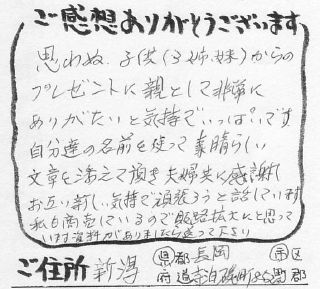 ご感想ありがとうございます
思わぬ、子供(3姉妹)からの
プレゼントに親として非常に
ありがたいと気持でいっぱいです
自分達の名前を使って素晴らしい
文章を添えて頂き夫婦共に感謝し
お互い新しい気持で頑張ろうと話しています
私も商売しているので販路拡大にと思って
います資料がありましたら送って下さい
ご住所 新潟 都道府県 長岡 市区町郡